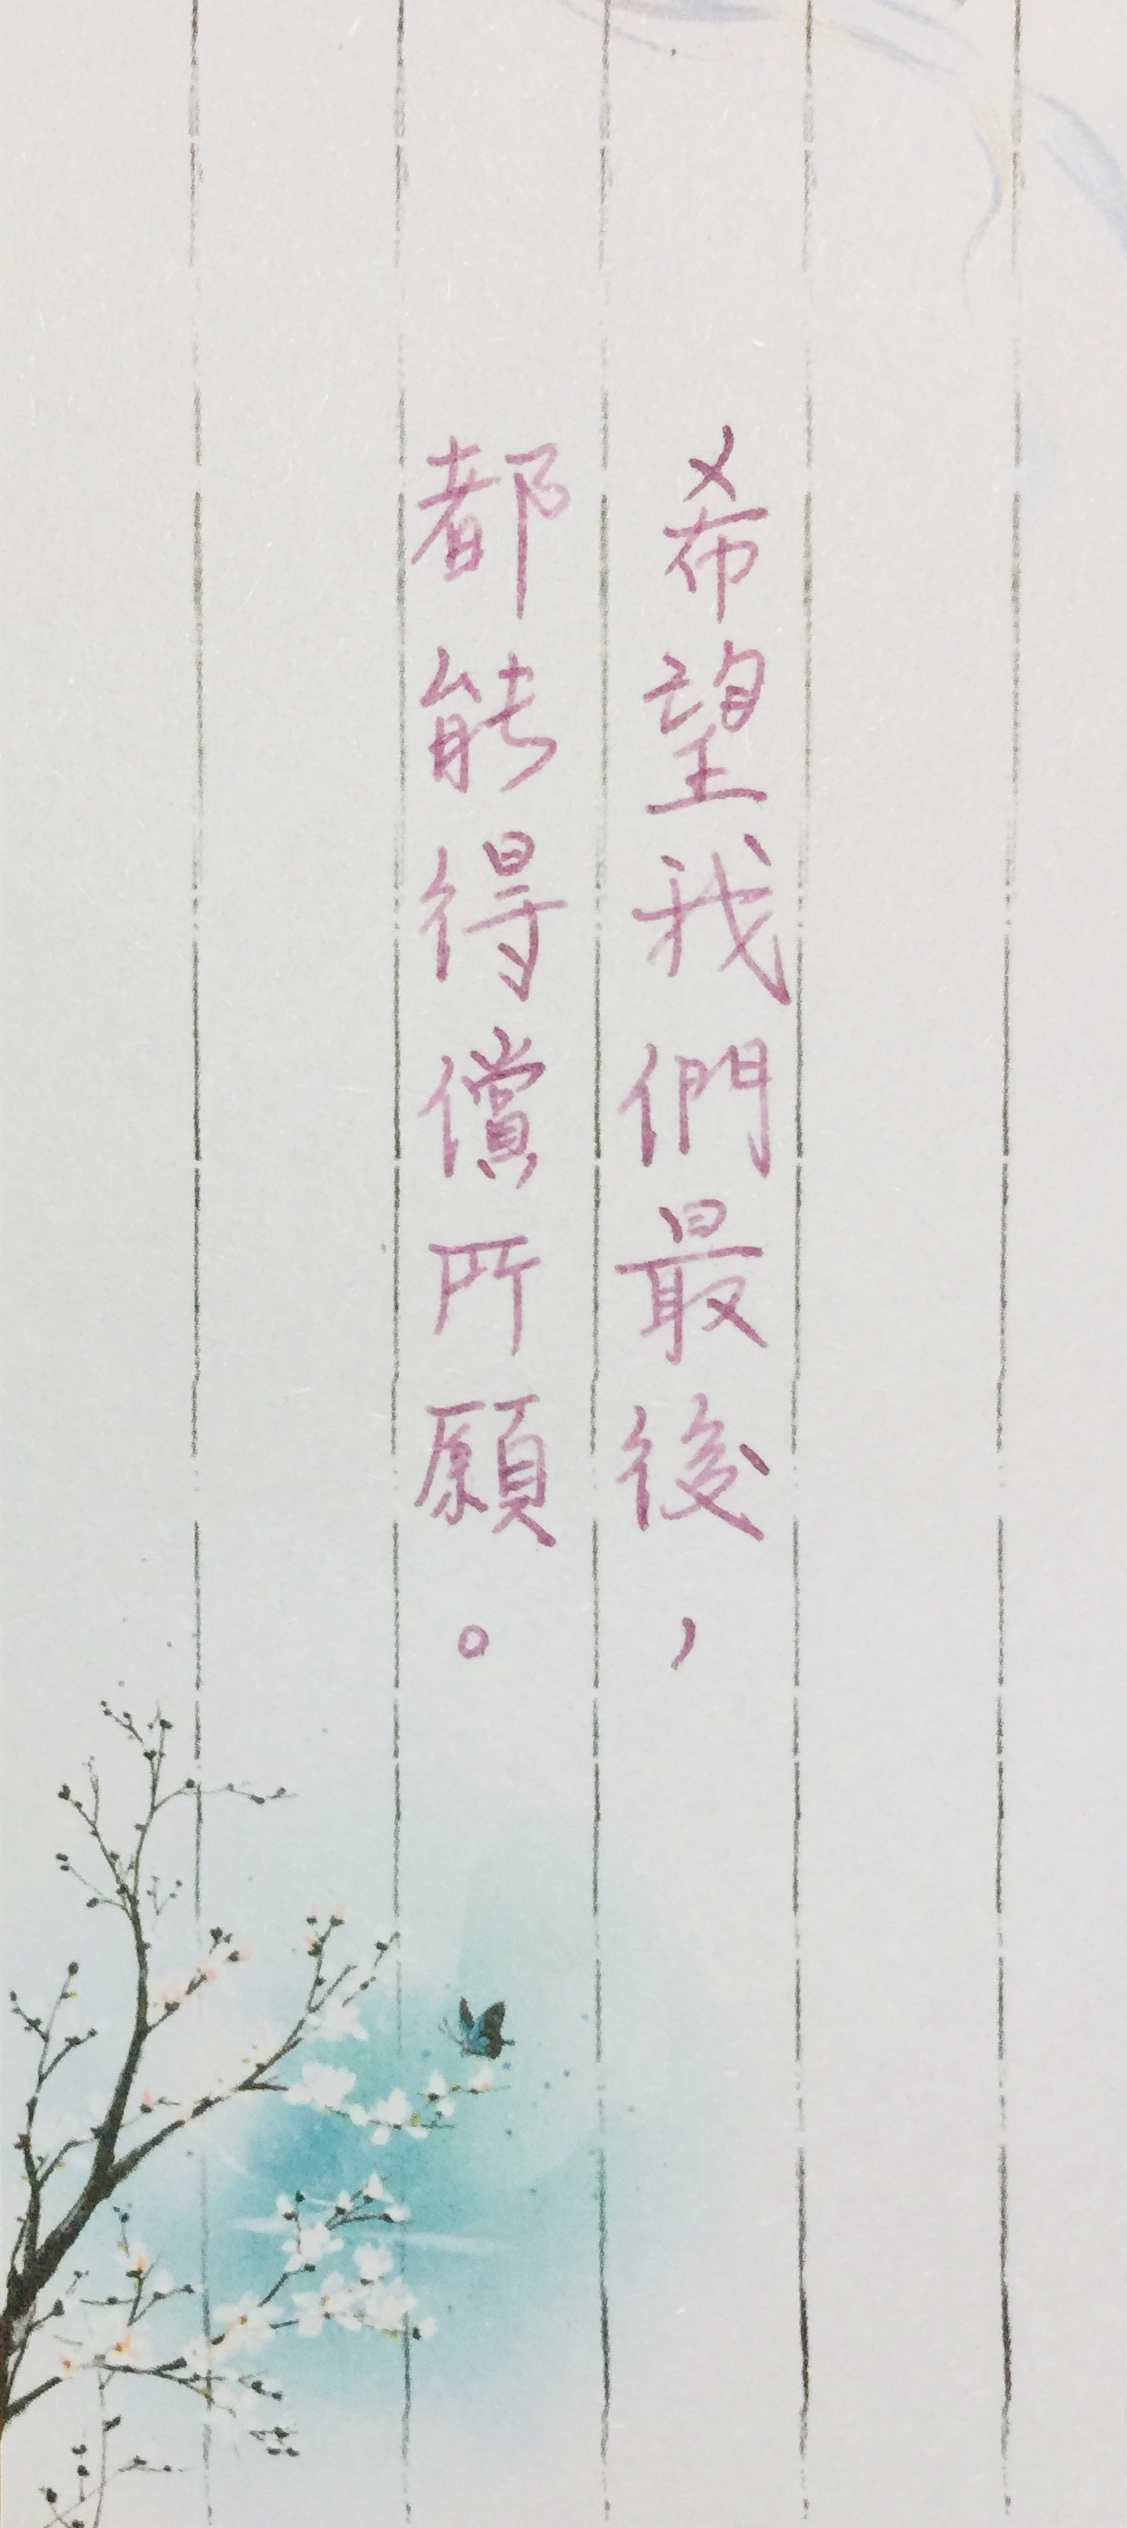 希望我們最後，
都能得償所願。